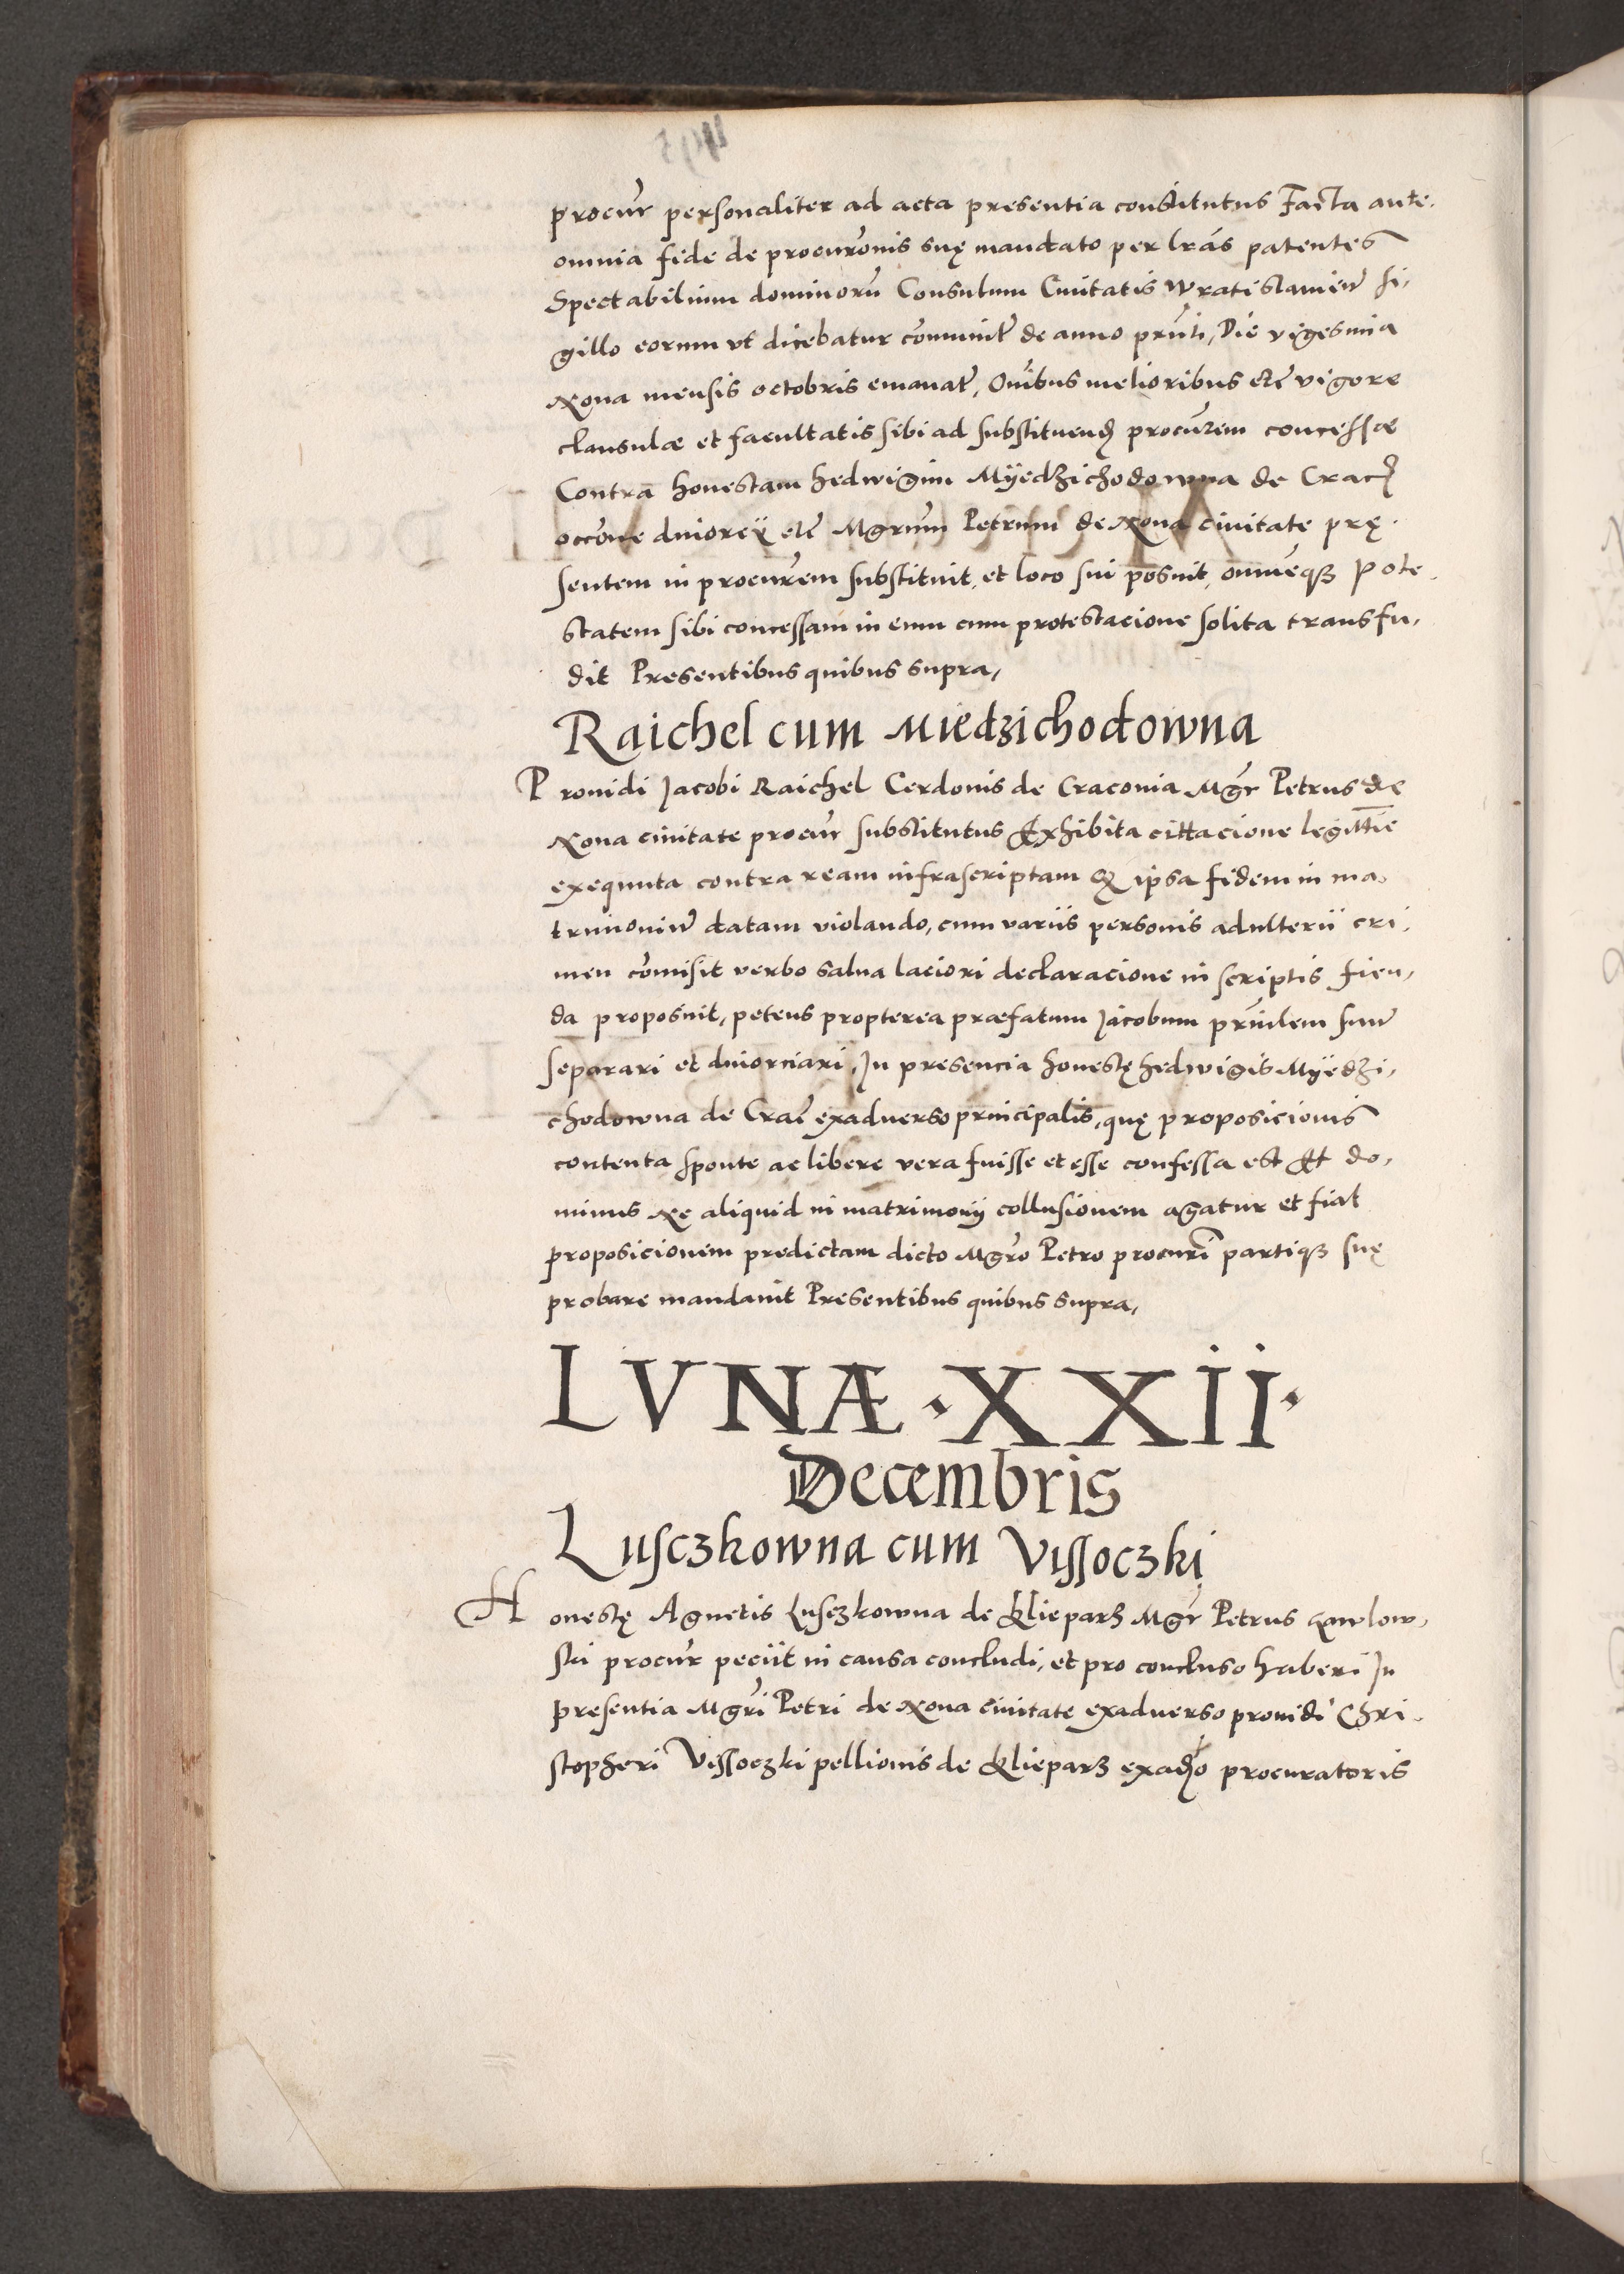 procur̄ personaliter ad acta presentia constitutus Facta ante.
omnia fide de procur̄onis suę mandato per lr̄as patentes
Spectabilium dominorū Consulum Ciuitatis Wratislauien̄ si,
gillo eorum vt dicebatur com̄unit̄ de anno pr̄nti, Die vigesima
Nona mensis octobris emanat̄, Om̄ibus melioribus etc̄ vigore
clausulæ et facultatis sibi ad substituend procur̄em concessæ
Contra honestam hedwigim Mÿedzichodowna de Crac
occ̄one diuorcÿ etc̄ Mgr̄um Petrum de Noua ciuitate prę.
sentem in procur̄em substituit, et loco sui posuit, omnēqꝫ Pote.
statem sibi concessam in eum cum protestacione solita transfu,
dit Presentibus quibus supra,
Raichel cum Miedzichodowna
Prouidi Jacobi Raichel Cerdonis de Craconia Mgr̄ Petrus de
Noua ciuitate procur̄ substitutus Exhibita cittacione legittīe
exequuta contra ream infrascriptam Qꝫ ipsa fidem in ma,
trimoniū datam violando, cum variis personis adulterii cri,
men com̄isit verbo salua laciori declaracione in scriptis fien,
da proposuit, petens propterea præfatum Jacobum pr̄inlem suū
separari et diuorciari, In presencia honestę hedwigis Mÿedzi,
chodowna de Crac̄ exaduerso principalis, quę proposicionis
contenta sponte ac libere vera fuisse et esse confessa est Et do,
minus Ne aliquid in matrimonij collusionem agatur et fiat
proposicionem predictam dicto Mgr̄o Petro procur̄i partiqꝫ suę
probare mandauit Presentibus quibus supra,
LVNÆ · XXII ·
Decembris
Lusczkowna cum Vissoczki
Honestę Agnetis Lusczkowna de Klieparz Mgr̄ Petrus Gawlow,
ski procur̄ peciit in causa concludi, et pro concluso haberi In
presentia Mgr̄i Petri de Noua ciuitate exaduerso prouidi Chri.
stopheri Vissoczki pellionis de Klieparz exad͛o procuratoris